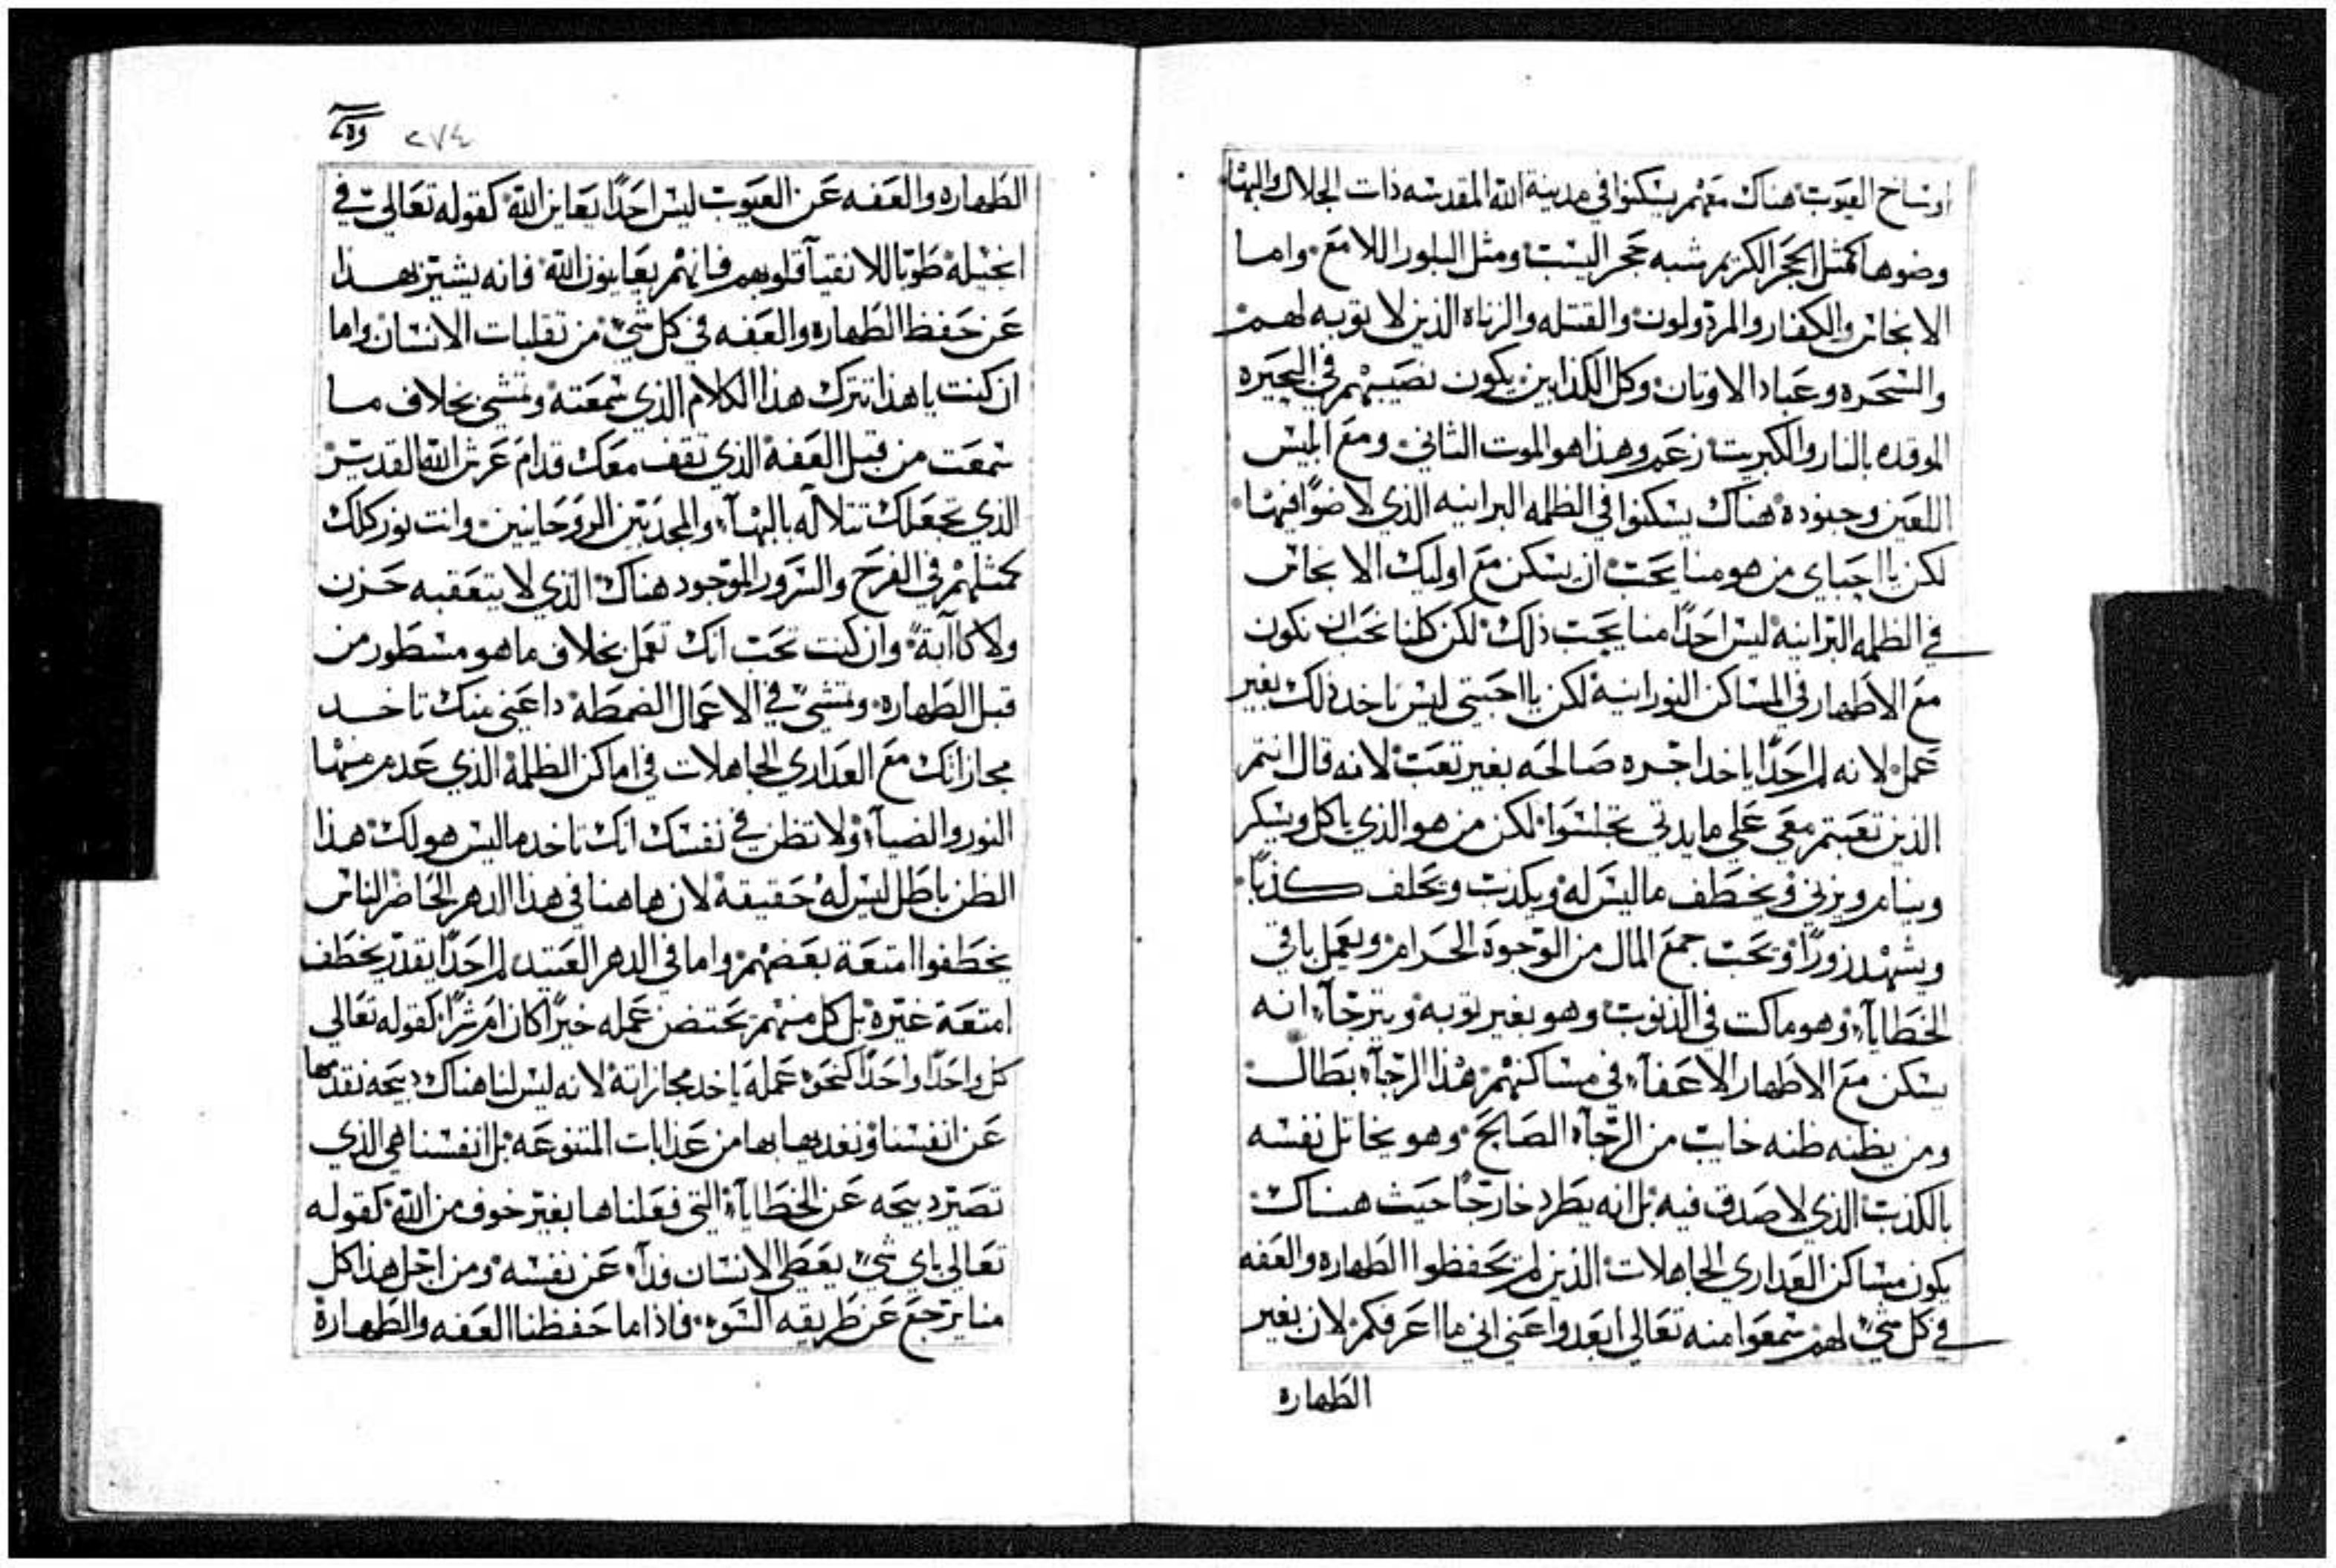 اوساخ العيوب هناك معهم يسكنوا في مدينة الله المقدسه ذات الجلال والبها
وضوها كمثل الحجر الكريم شبه حجر اليسب ومثل البلور اللامع واما
الانجاس والكفار والمرذولون والقتله والزناه الذين لا توبه لهم
والسحره وعباد الاوتان وكل الكذابين يكون نصيبهم في البحيره
الموقده بالنار والكبريت زعم وهذا هو الموت الثاني ومع ابليس
اللعين وجنوده هناك يسكنوا في الظلمه البرانيه الذي لا ضوًا فيها
لكن يا احباي من هو منا يحب ان يسكن مع اوليك الانجاس
في الظلمه البرانيه ليس احدًا منا يحب ذلك لكن كلنا نحب ان نكون
مع الاطهار في المساكن النورانيه لكن يا احبتي ليس ناخد ذلك بغير
عمل لانه لم احدًا ياخد اجره صالحه بغير تعب لانه قال انتم
الذين تعبتم معي على مايدتي تجلسوا لكن من هو الذي ياكل ويسكر
وينام ويزني ويخطف ما ليس له ويكذب ويحلف كذبًا
ويشهد زورًا ويحب جمع المال من الوجوة الحرام ويعمل باقي
الخطايآء وهو ماكت في الذنوب وهو بغير توبه ويترجآء انه
يسكن مع الاطهار الاعفآء في مساكنهم هذا الرجآء بطال
ومن يظنه ظنه خايب من الرجآء الصالح وهو يخاتل نفسه
بالكذب الذي لا صدق فيه بل انه يطرد خارجًا حيث هناك
يكون مساكن العدارى الجاهلات الذين لم يحفظوا الطهاره والعفه
في كل شيء لهم سمعوا منه تعالى ابعدوا عني اني ما اعرفكم لان بغير
الطهاره
٢٧٤
الطهاره والعفه عن العيوب ليس احدًا يعاين الله كقوله تعالى في
انجيله طوبا للانقيآ قلوبهم فانهم يعاينون الله فانه يشير بهذا
عن حفظ الطهاره والعفه في كل شيء من تقلبات الانسان واما
ان كنت يا هذا تترك هذا الكلام الذي سمعته وتمشي بخلاف ما
سمعت من قبل العفه الذي تقف معك قدام عرش الله القديس
الذي تجعلك تتلاله بالبهآء والمجد بين الروحانيين وانت نور كلك
كمثلهم في الفرح والسرور الموجود هناك الذي لا يتعقبه حزن
ولا كاآبة وان كنت تحب انك تعمل بخلاف ما هو مسطور من
قبل الطهاره وتمشي في الاعمال الضمطه داعني منك تاخد
مجازاتك مع العدارى الجاهلات في اماكن الظلمه الذي عدم منها
النور والضيآء ولا تظن في نفسك انك تاخد ما ليس هو لك هذا
الظن باطل ليس له حقيقة لان هاهنا في هذا الدهر الحاضر الناس
يخطفوا امتعة بعضهم واما في الدهر العتيد لم احدًا يقدر يخطف
امتعة غيره بل كل منهم يحتضن عمله خيرًا كان ام شرًا كقوله تعالى
كل واحدًا واحدًا كنحو عمله ياخد مجازاته لانه ليس لنا هناك دبيحه نقدمها
عن انفسنا ونفديها بها من عذابات المتنوعه بل انفسنا هي الذي
تصير دبيحه عن الخطايآء التي فعلناها بغير خوف من الله كقوله
تعالى باي شيء يعطي الانسان فدآء عن نفسه ومن اجل هذا كل
منا يرجع عن طريقه السوء فاذا ما حفظنا العفه والطهارة